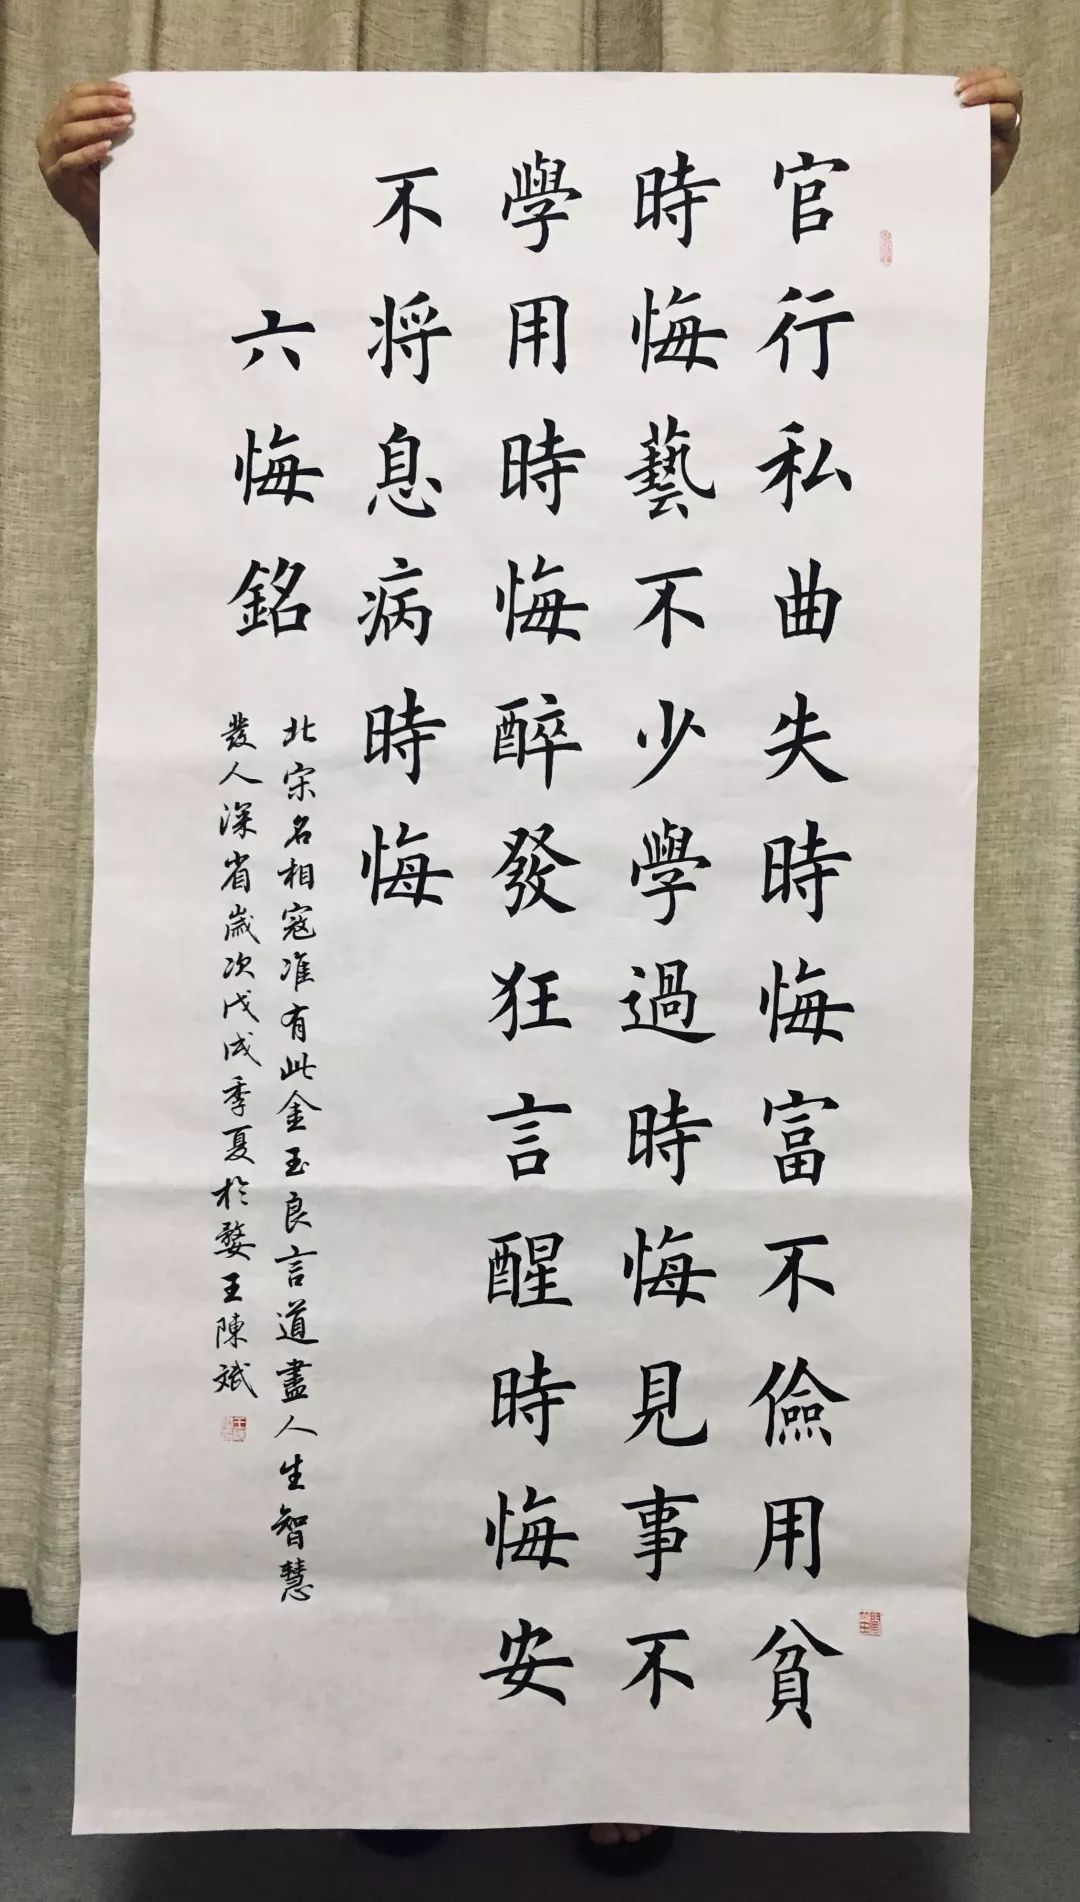 官行私曲失時悔富不儉用貧
時悔藝不少學過時悔見事不
學用時悔醉發狂言醒時悔安
不将息病時悔
六悔銘
北宋名相寇准有此金玉良言道盡人生智慧
發人深省歲次戊戌季夏於婺王陳斌